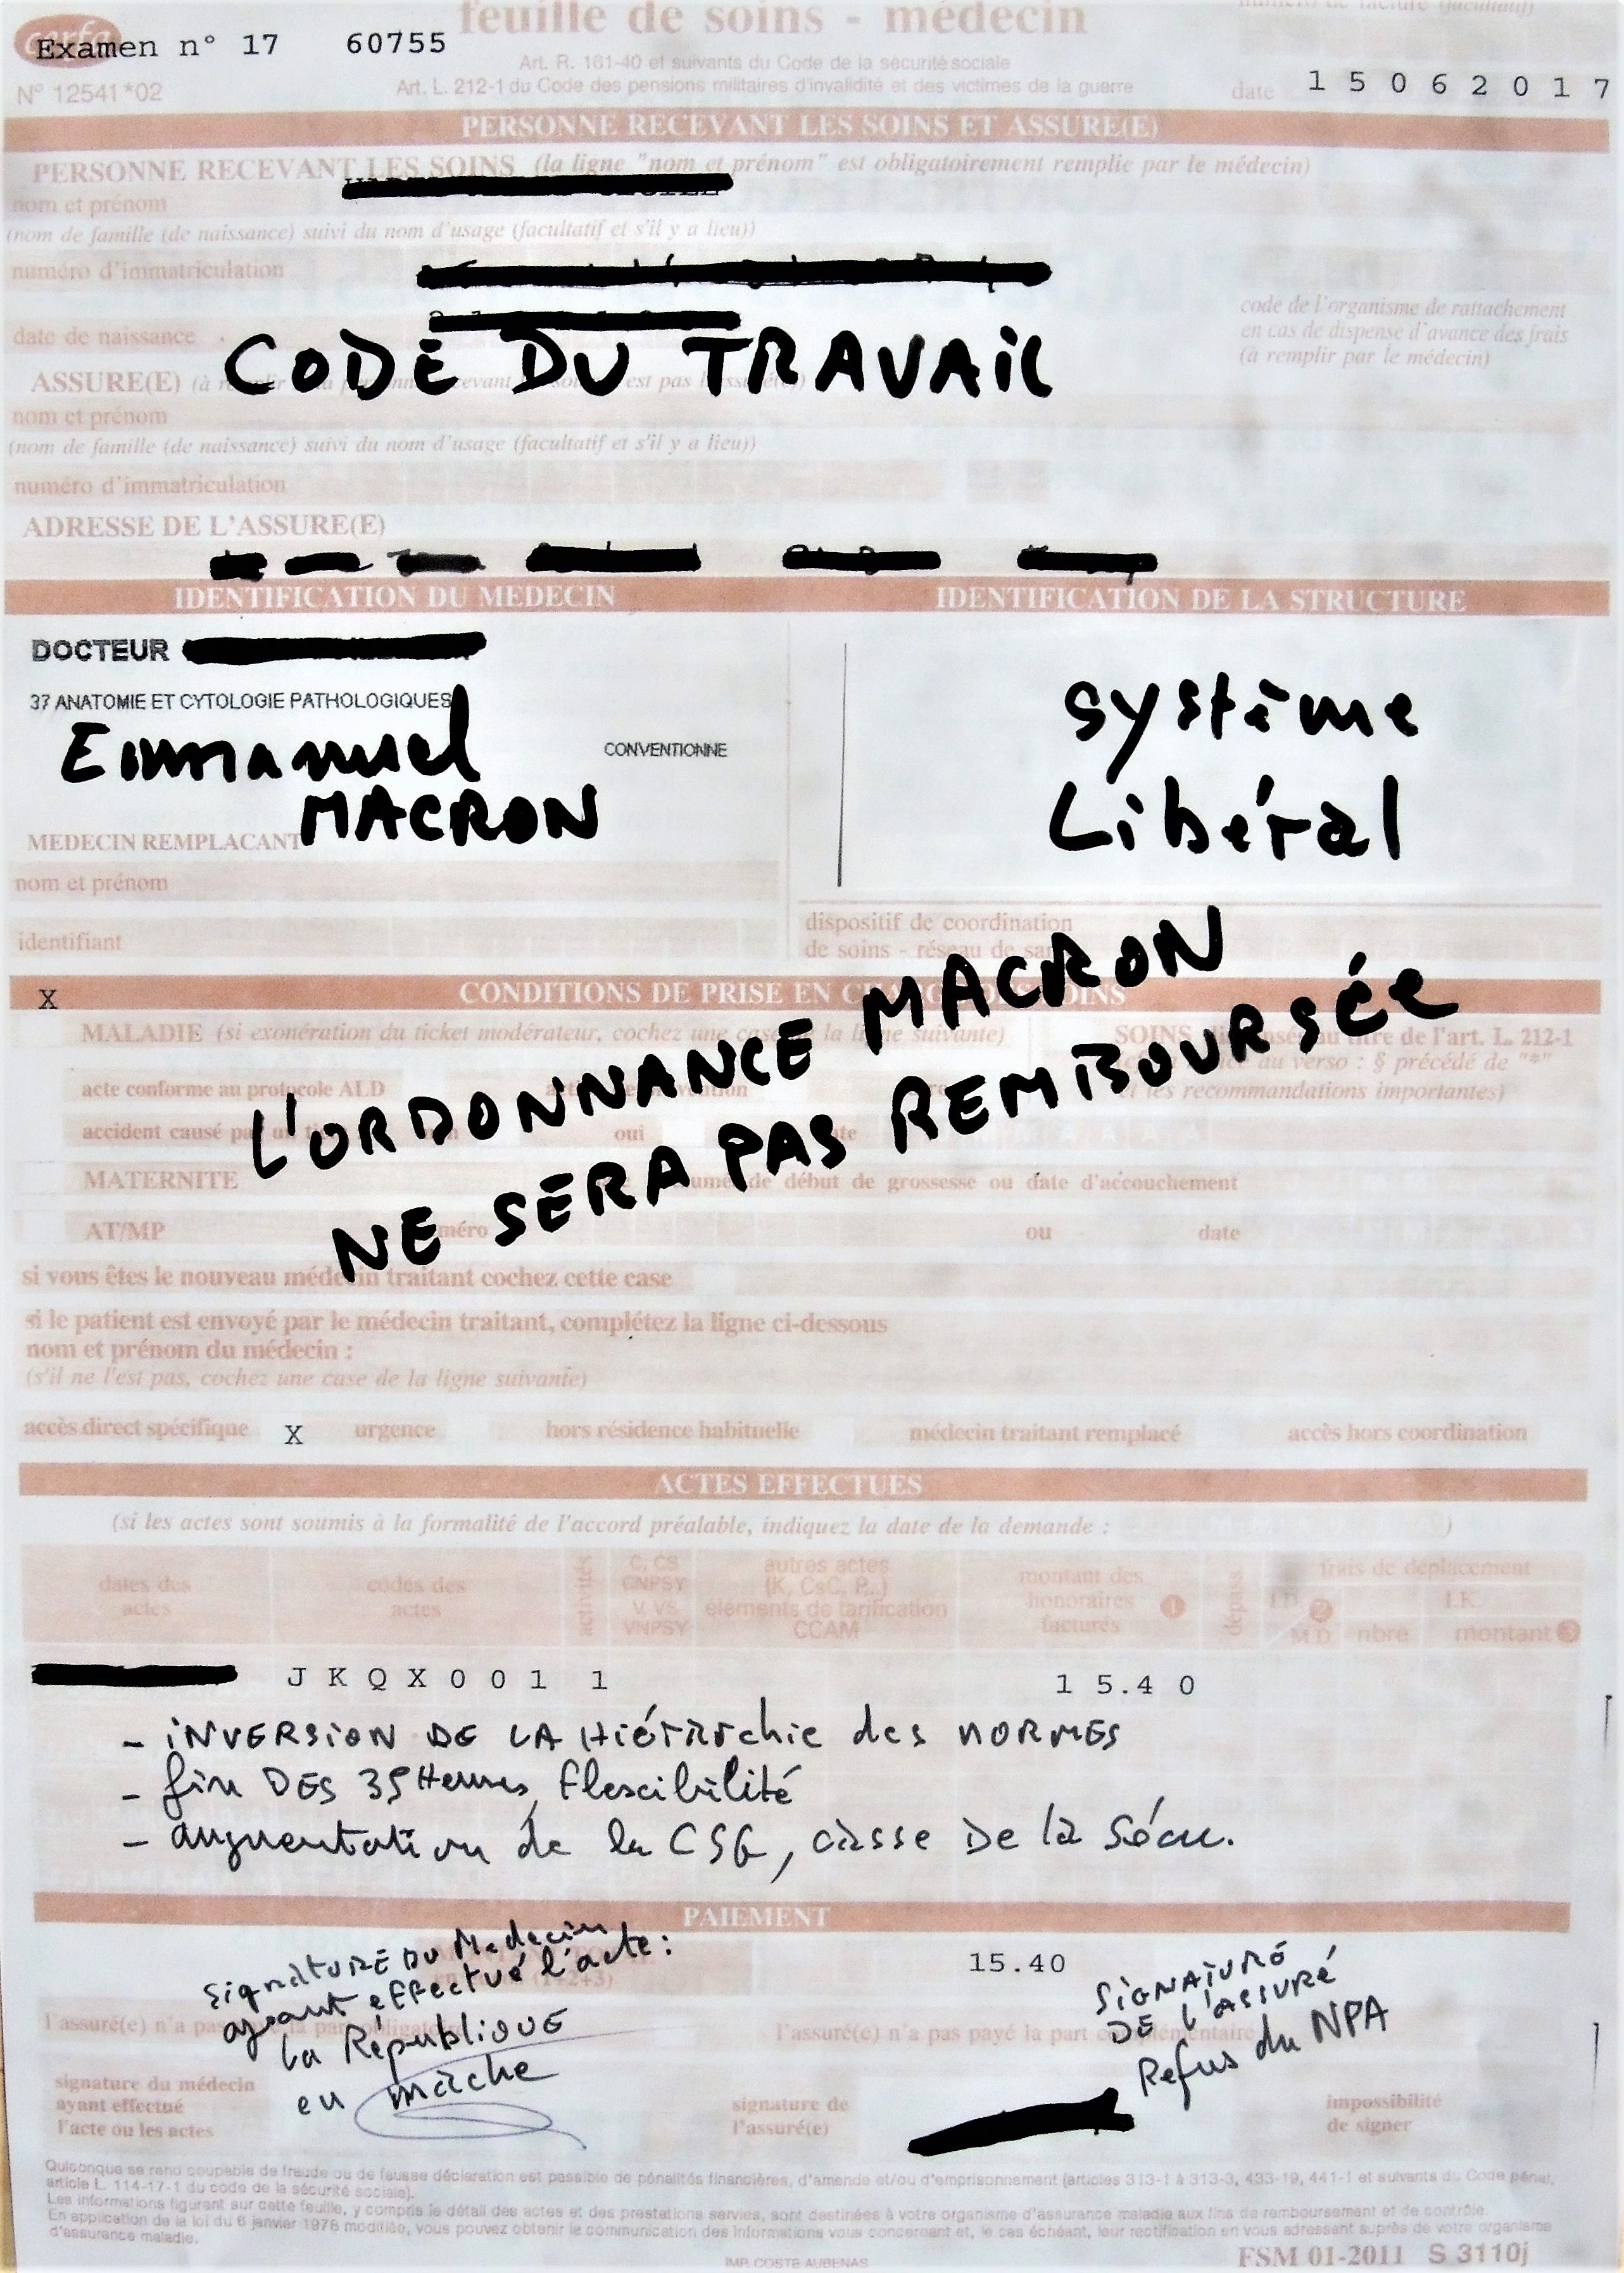 feuille de soins - médecin
cerfa
Examen n° 17 60755
Art. R. 161-40 et suivants du Code de la sécurité sociale
N° 12541*02
Art. L. 212-1 du Code des pensions militaires d'invalidité et des victimes de la guerre
date 1 5 0 6 2 0 1 7
PERSONNE RECEVANT LES SOINS ET ASSURE(E)
PERSONNE RECEVANT LES SOINS (la ligne "nom et prénom" est obligatoirement remplie par le médecin)
nom et prénom
(nom de famille (de naissance) suivi du nom d'usage (facultatif et s'il y a lieu))
numéro d'immatriculation
code de l'organisme de rattachement
en cas de dispense d'avance des frais
(à remplir par le médecin)
date de naissance
CODE DU TRAVAIL
ASSURE(E)
nom et prénom
(nom de famille (de naissance) suivi du nom d'usage (facultatif et s'il y a lieu))
numéro d'immatriculation
ADRESSE DE L'ASSURE(E)
IDENTIFICATION DU MEDECIN
IDENTIFICATION DE LA STRUCTURE
DOCTEUR
37 ANATOMIE ET CYTOLOGIE PATHOLOGIQUES
Emmanuel
MACRON
CONVENTIONNE
système
Libéral
MEDECIN REMPLACANT
nom et prénom
identifiant
dispositif de coordination
de soins - réseau de
X
CONDITIONS DE PRISE EN
L'ORDONNANCE MACRON
NE SERA PAS REMBOURSÉE
MALADIE (si exonération du ticket modérateur, cochez une case de la ligne suivante)
SOINS de l'art. L. 212-1
au verso : § précédé de "*"
les recommandations importantes)
acte conforme au protocole ALD
accident causé
oui
MATERNITE
de début de grossesse ou date d'accouchement
AT/MP
ou date
si vous êtes le nouveau médecin traitant cochez cette case
si le patient est envoyé par le médecin traitant, complétez la ligne ci-dessous
nom et prénom du médecin :
(s'il ne l'est pas, cochez une case de la ligne suivante)
accès direct spécifique X urgence hors résidence habituelle médecin traitant remplacé accès hors coordination
ACTES EFFECTUES
(si les actes sont soumis à la formalité de l'accord préalable, indiquez la date de la demande : )
dates des
actes
codes des
actes
activités
C, CS
CNPSY
V, VS
VNPSY
autres actes
(K, CsC, P...)
éléments de tarification
CCAM
montant des
honoraires
facturés 1
dépass.
frais de déplacement
I.D. 2
M.D.
I.K.
nbre montant 3
J K Q X 0 0 1 1 1 5.4 0
- INVERSION DE LA Hiérarchie des NORMES
- fin DES 35 Heures, flexcibilité
- augmentation de la CSG, casse De la Sécu.
PAIEMENT
SignATURE DU Medecin
ayant effectué l'acte :
la République
en mache
15.40
SiGNATURE
DE L'ASSURÉ
Refus du NPA
l'assuré(e) n'a pas
l'assuré(e) n'a pas payé la part complémentaire
signature du médecin
ayant effectué
l'acte ou les actes
signature de
l'assuré(e)
impossibilité
de signer
Quiconque se rend coupable de fraude ou de fausse déclaration est passible de pénalités financières, d'amende et/ou d'emprisonnement (articles 313-1 à 313-3, 433-19, 441-1 et suivants du Code pénal,
article L. 114-17-1 du code de la sécurité sociale).
Les informations figurant sur cette feuille, y compris le détail des actes et des prestations servies, sont destinées à votre organisme d'assurance maladie aux fins de remboursement et de contrôle.
En application de la loi du 6 janvier 1978 modifiée, vous pouvez obtenir la communication des informations vous concernant et, le cas échéant, leur rectification en vous adressant auprès de votre organisme
d'assurance maladie.
IMP. COSTE AUBENAS
FSM 01-2011 S 3110j